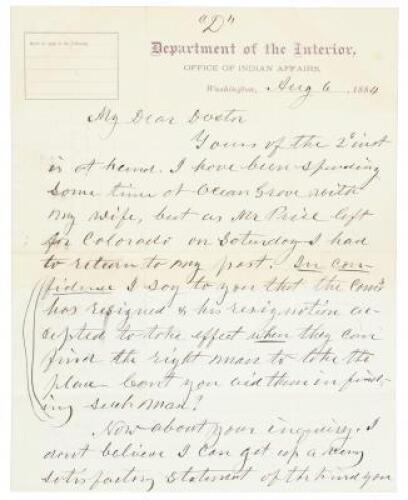 "D"
Department of the Interior,
OFFICE OF INDIAN AFFAIRS,
Washington, Aug 6, 1884
My Dear Doctor
Yours of the 2d inst
is at hand. I have been spending
some time at Ocean Grove with
my wife, but as Mr Price left
for Colorado on Saturday I had
to return to my post. In con-
fidence I say to you that the Com'r
has resigned & his resignation ac-
cepted to take effect when they can
find the right man to take the
place Can't you aid them in find-
ing such man?
Now about your inquiry. I
don't believe I can get up a very
satisfactory statement of the kind you